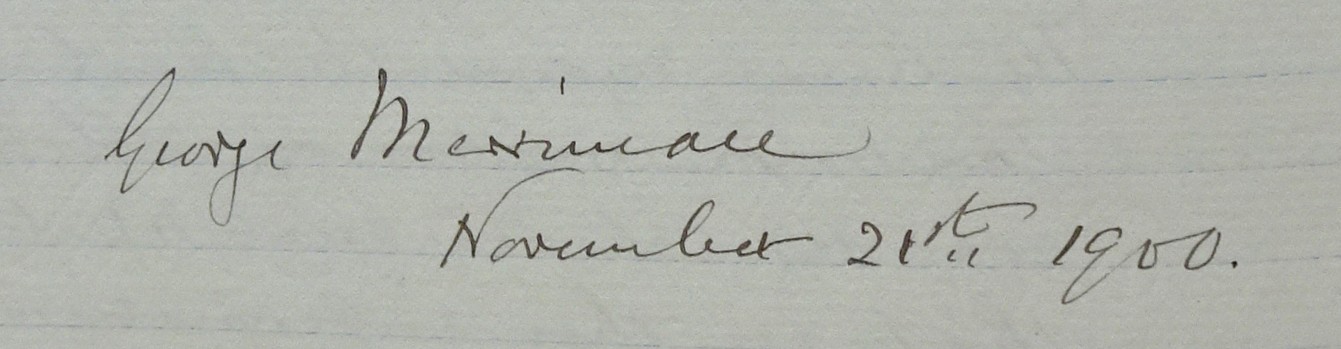 George Merriman
November 21st 1900.